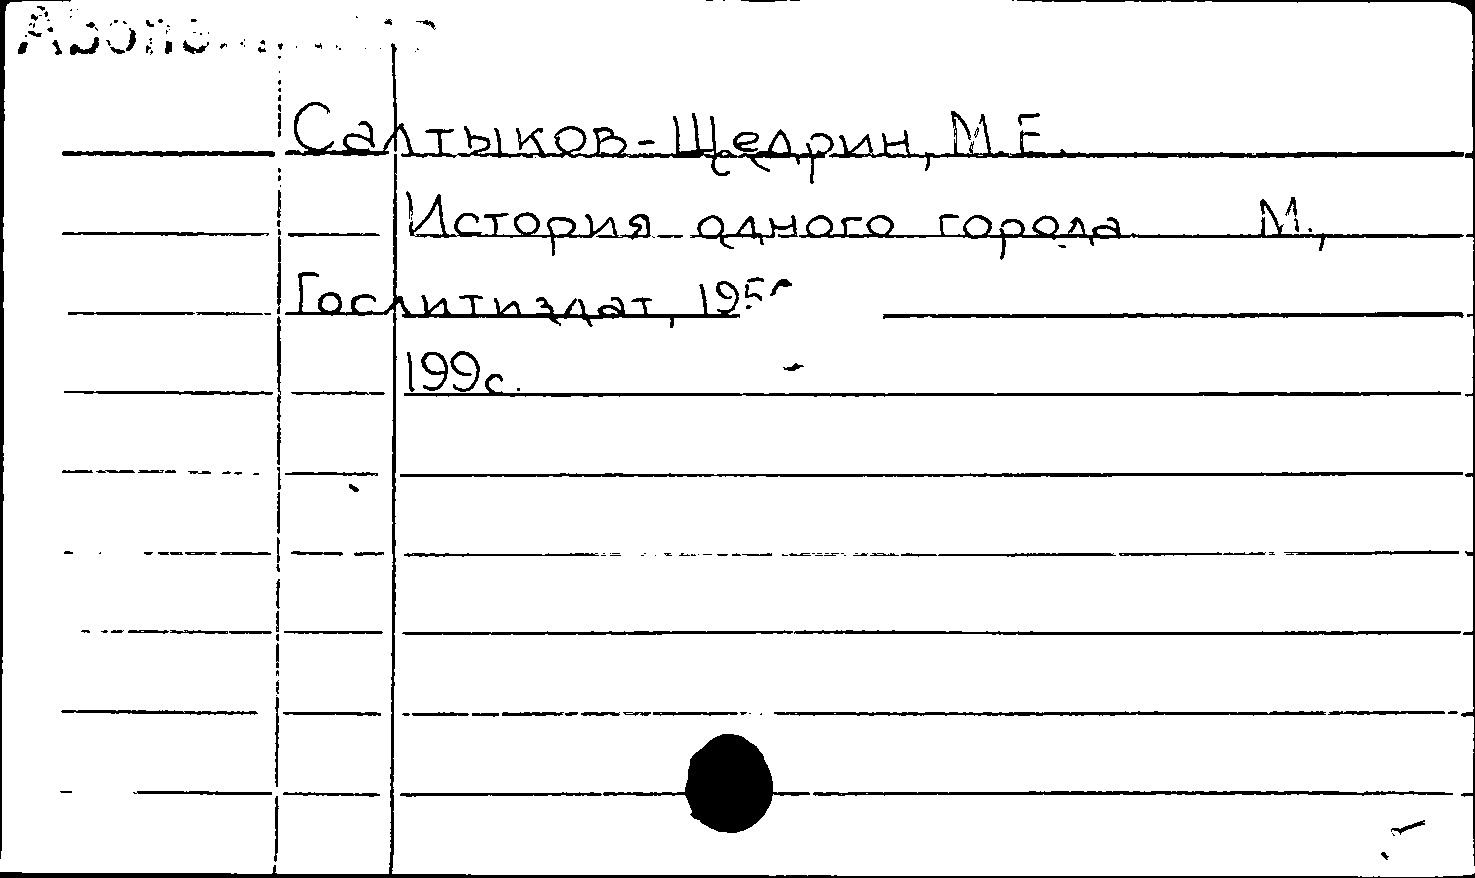 Салтыков-Щедрин, М.Е.
История одного города М.,
Гослитиздат,
199с.